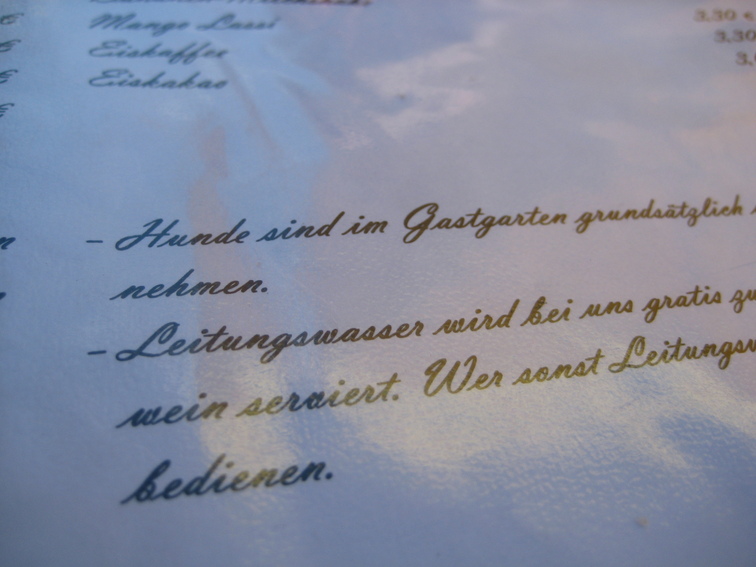 Mango Lassi 3,30 €
Eiskaffee 3,30
Eiskakao
- Hunde sind im Gastgarten grundsätzlich
nehmen.
- Leitungswasser wird bei uns gratis zu
wein serviert. Wer sonst Leitungsw
bedienen.